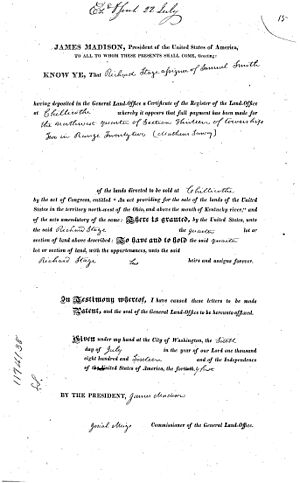 Exd & sent 22 July
15
JAMES MADISON, President of the United States of America,
TO ALL TO WHOM THESE PRESENTS SHALL COME, Greeting:
KNOW YE, That Richard Stage assignee of Samuel Smith
having deposited in the General Land-Office a Certificate of the Register of the Land-Office
at Chillicothe whereby it appears that full payment has been made for
the northwest quarter of Section thirteen of township
Two in Range twenty two (Mathews Survey)
of the lands directed to be sold at Chillicothe
by the act of Congress, entitled "An act providing for the sale of the lands of the United
States in the territory north-west of the Ohio, and above the mouth of Kentucky river," and
of the acts amendatory of the same: There is granted, by the United States, unto
the said Richard Stage the quarter lot or
section of land above described: To have and to hold the said quarter
lot or section of land, with the appurtenances, unto the said
Richard Stage his heirs and assigns forever.
In Testimony whereof, I have caused these letters to be made
Patent, and the seal of the General Land-Office to be hereunto affixed.
Given under my hand at the City of Washington, the
day of July in the year of our Lord one thousand
eight hundred and and of the Independence
of the United States of America, the fortieth & first
BY THE PRESIDENT, James Madison
Josiah Meigs Commissioner of the General Land-Office.